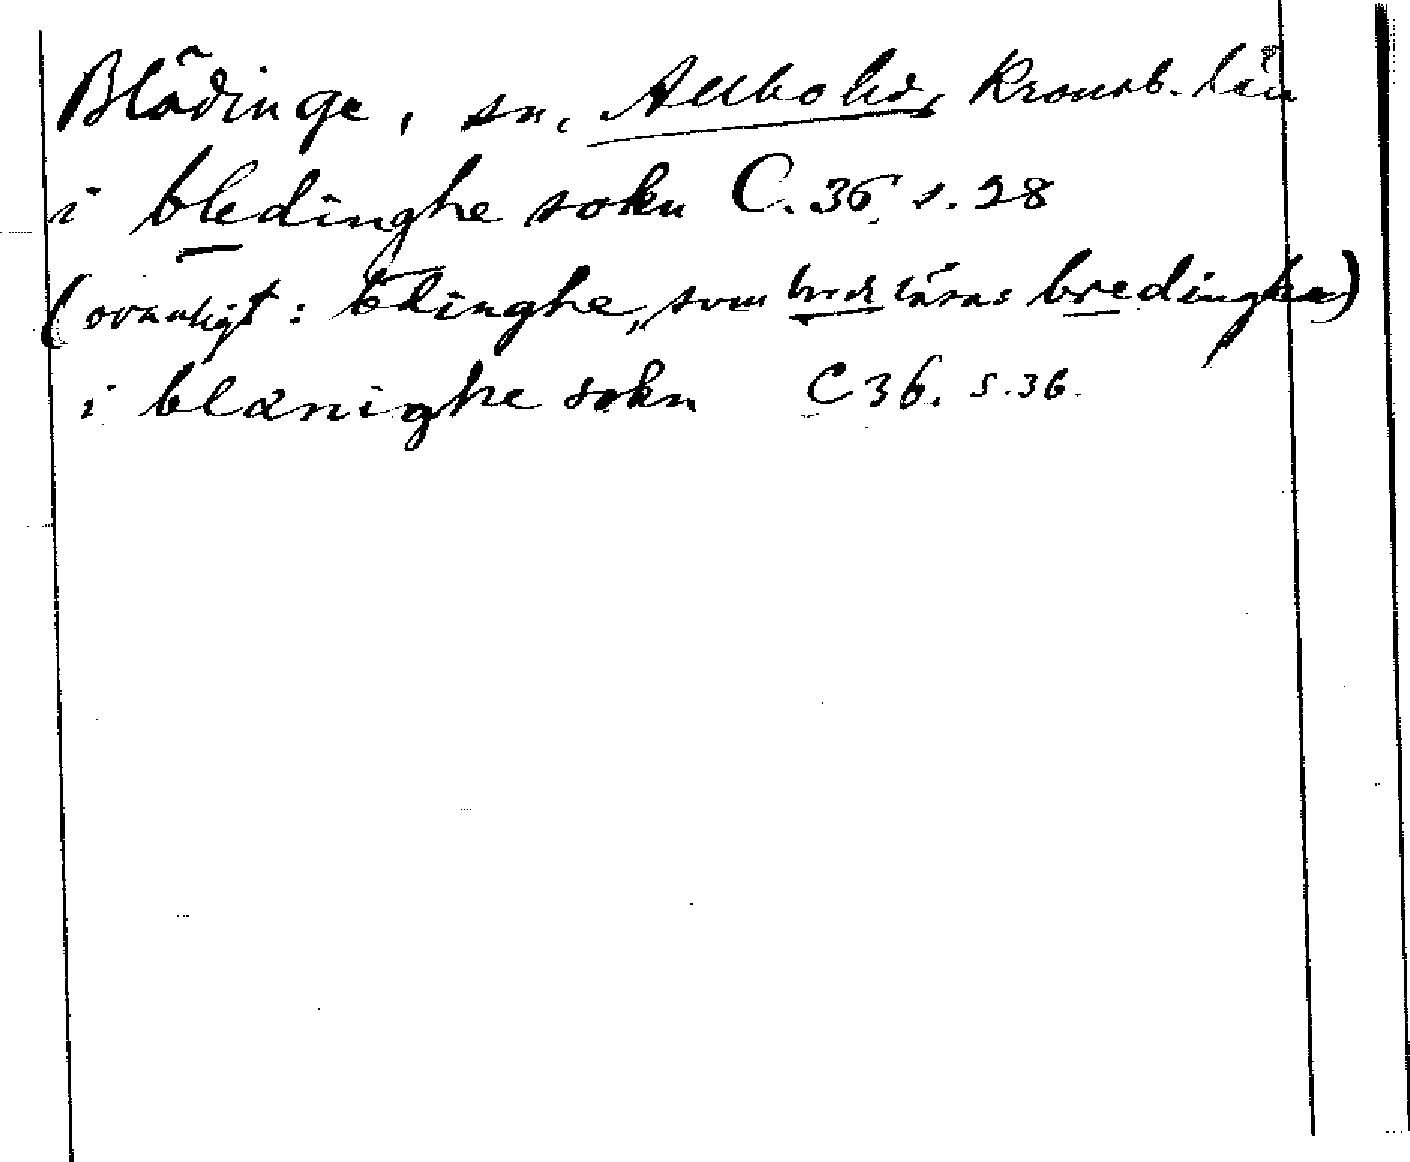 Blädinge, sn, Allbo hd, Kronob. län
i bledinghe sokn C. 36 s. 28
(ovanligt: bdinghe, som läses bredinghe)
i blænighe sokn C 36. s. 36.